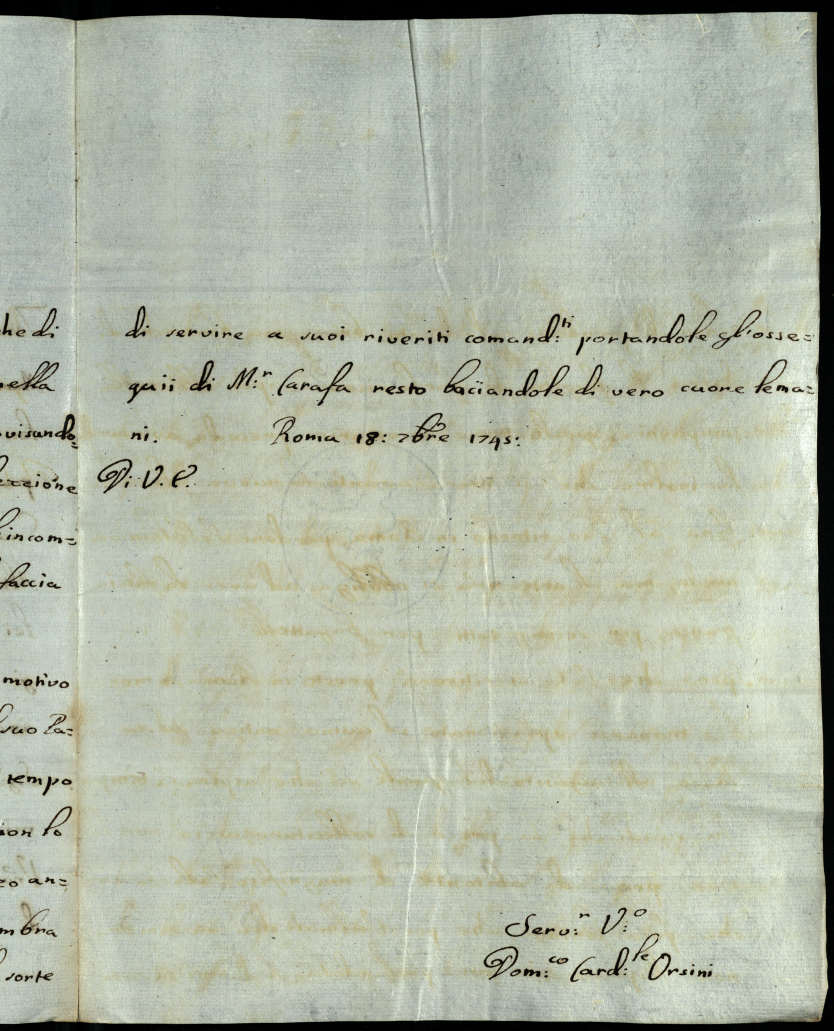 he di
nella
visando=
ezzione
incom=
faccia
motivo
suo Pa=
tempo
non lo
zo an=
mbra
sorte
di servire a suoi riveriti comand:ti portandole gl'osse=
quii di M:r Carafa resto baciandole di vero cuore le ma=
ni. Roma 18: 7bre 1745:
Di V. E.
Serv:r V:o
Dom:co Card:le Orsini